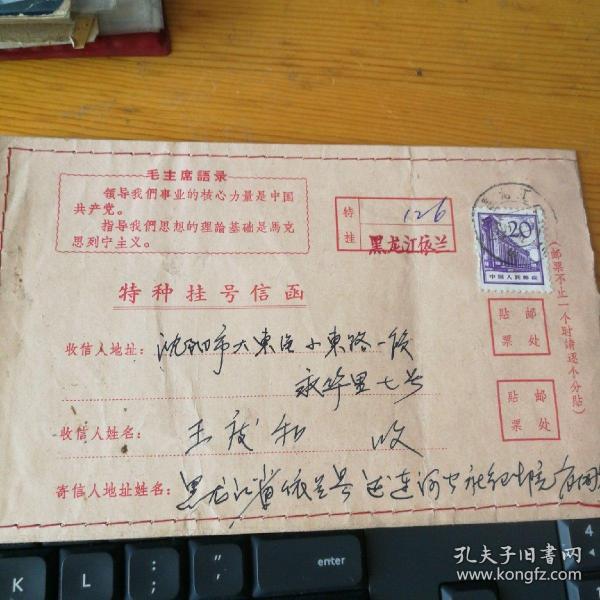 毛主席語录
領导我們事业的核心力量是中国
共产党。
指导我們思想的理論基础是馬克
思列宁主义。
特挂
126
黑龙江依兰
20
中国人民邮政
特种挂号信函
(邮票不止一个时请逐个分貼)
邮票貼处
邮票貼处
收信人地址：沈阳市大東区小東路一段
永华里七号
收信人姓名：王 和 收
寄信人地址姓名：黑龙江省依兰县达连河公社
enter
K
L
:
;
"
'
4
孔夫子旧书网
www.kongfz.com